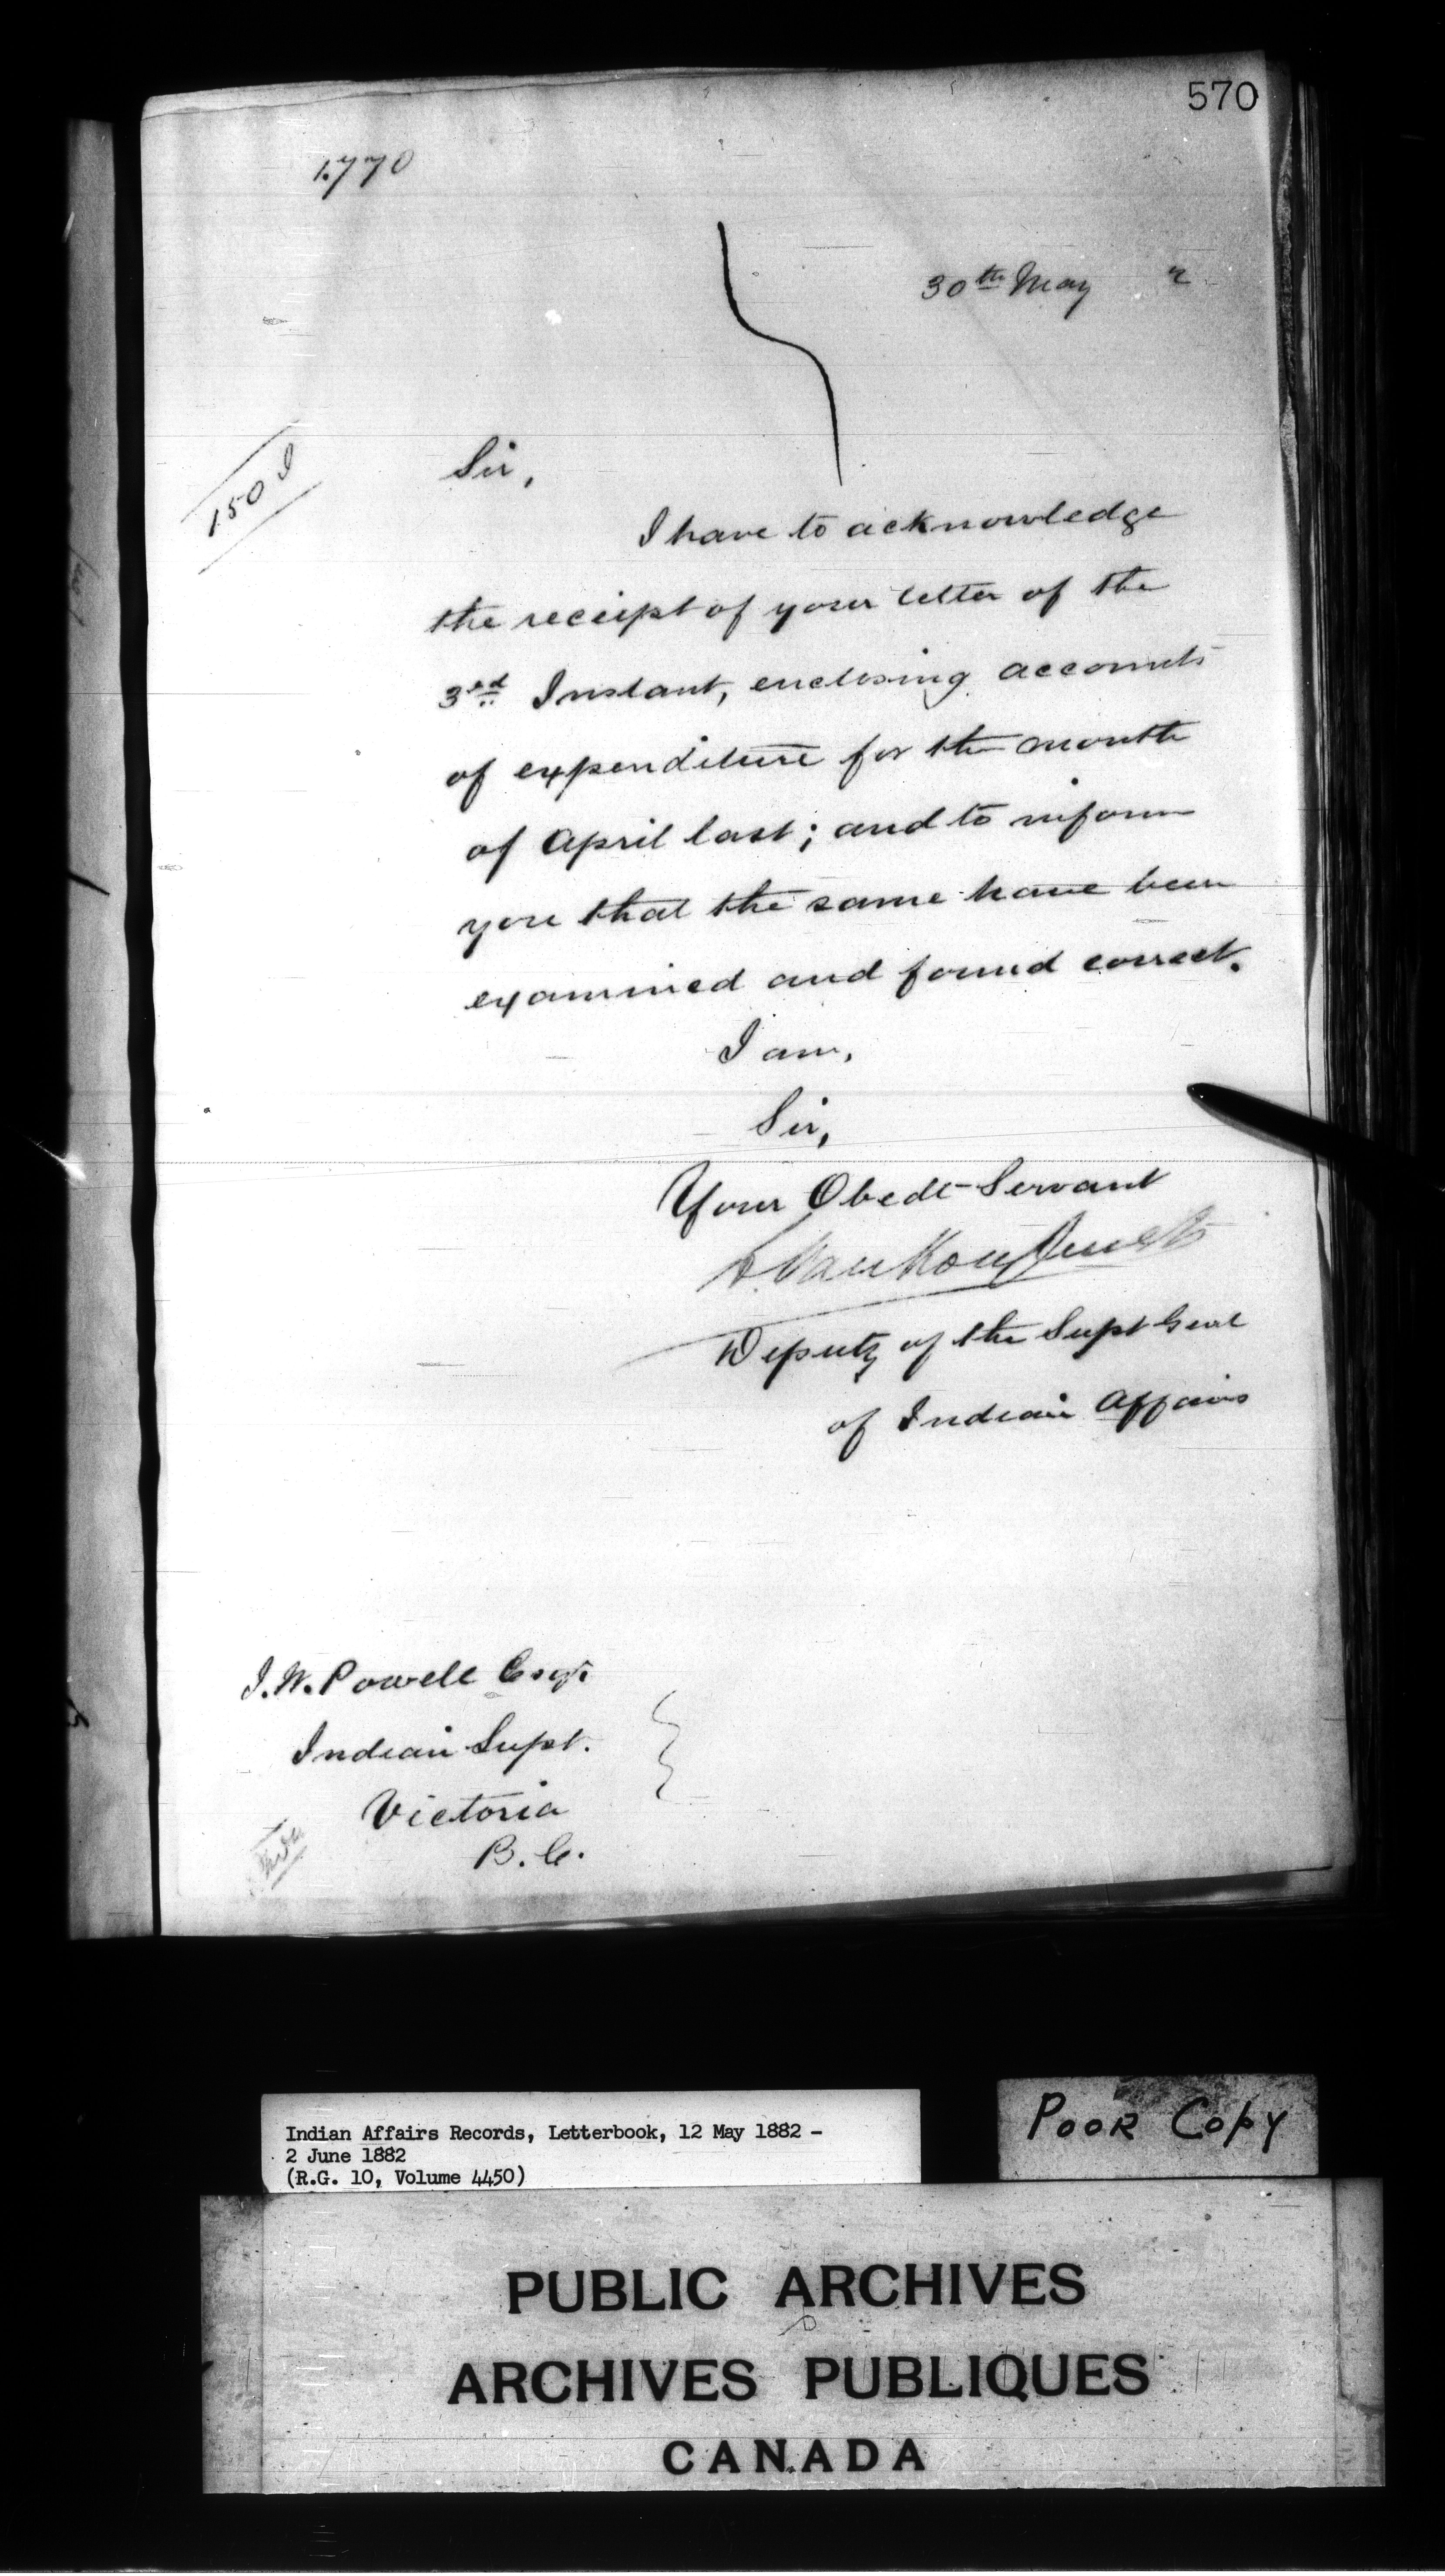 570
1.770
30th May 2
150 I
Sir,
I have to acknowledge
the receipt of your letter of the
3rd Instant, enclosing accounts
of expenditure for the month
of April last; and to inform
you that the same have been
examined and found correct.
I am,
Sir,
Your Obedt Servant
L. VanKoughnet
Deputy of the Supt Genl
of Indian Affairs
I. W. Powell Esqr.
Indian Supt.
Victoria
B.C.
Indian Affairs Records, Letterbook, 12 May 1882 -
2 June 1882
(R.G. 10, Volume 4450)
POOR COPY
PUBLIC ARCHIVES
ARCHIVES PUBLIQUES
CANADA